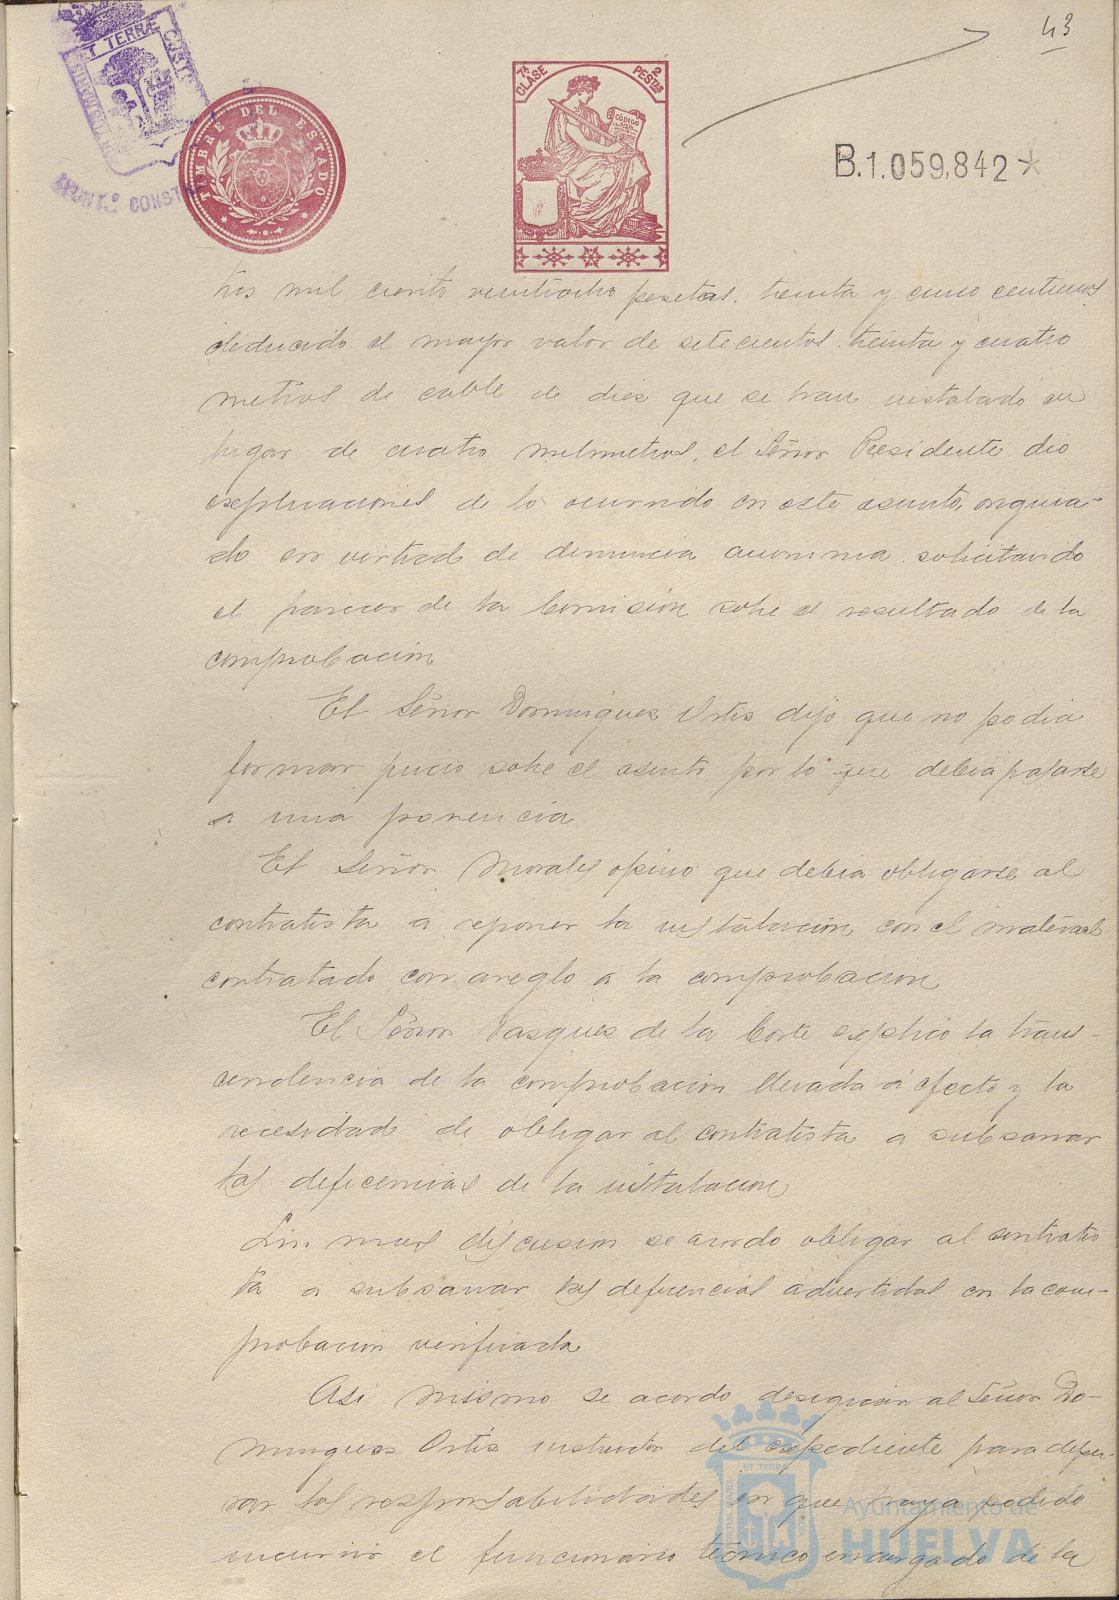 43
ET TERRÆ
CUST
AYUNT.º CONST
TIMBRE DEL ESTADO
7ª CLASE
2 PESTAS
CÓDIGO
B.1.059,842*
tres mil ciento veintiocho pesetas, treinta y cinco centimos
deducido el mayor valor de setecientos treinta y cuatro
metros de cable de diez que se han instalado en
lugar de cuatro milimetros, el Señor Presidente dio
explicaciones de lo ocurrido en este asunto, origina-
do en virtud de denuncia anonima solicitando
el parecer de la Comisión sobre el resultado de la
comprobacion
El Señor Dominguez Ortiz dijo que no podia
formar juicio sobre el asunto por lo que debia pasarse
a una ponencia
El Señor Morales opino que debia obligarse al
contratista a reponer la instalacion con el material
contratado con areglo a la comprobacion
El Señor Vazquez de la Corte explico la trans-
cendencia de la comprobacion llevada a efecto y la
necesidad de obligar al contratista a subsanar
las deficencias de la instalacion
Sin mas discusion se acordo obligar al contratis
ta a subsanar las deficencias advertidas en la com-
probacion verificada
Asi mismo se acordo designar al Señor Do-
minguez Ortiz instructor del expediente para depu-
rar las responsabilidades en que haya podido
incurrir el funcionario técnico encargado de la
Ayuntamiento de
HUELVA